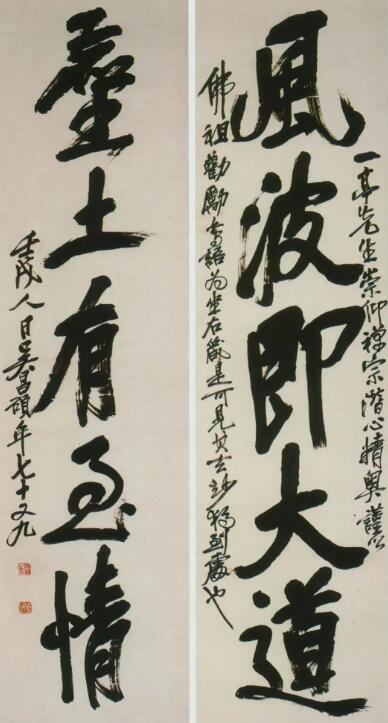 風波即大道
一亭先生崇仰禅宗潛心精奧謹以
佛祖勸勵語为坐右箴是可見其玄妙獨到處也
塵土有至情
壬戌人日吳昌碩年七十又九